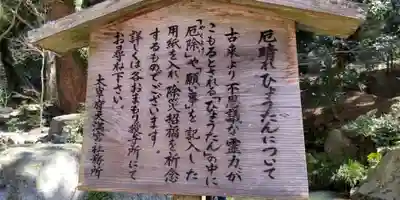 厄晴れひょうたんについて
古来より不思議な霊力が
こもるとされる「ひょうたん」の中に
「厄除」や「願い事」を記入した
用紙を入れ、除災招福を祈念
するものでございます。
詳しくは各おまもり授与所にて
お尋ね下さい。
太宰府天満宮社務所